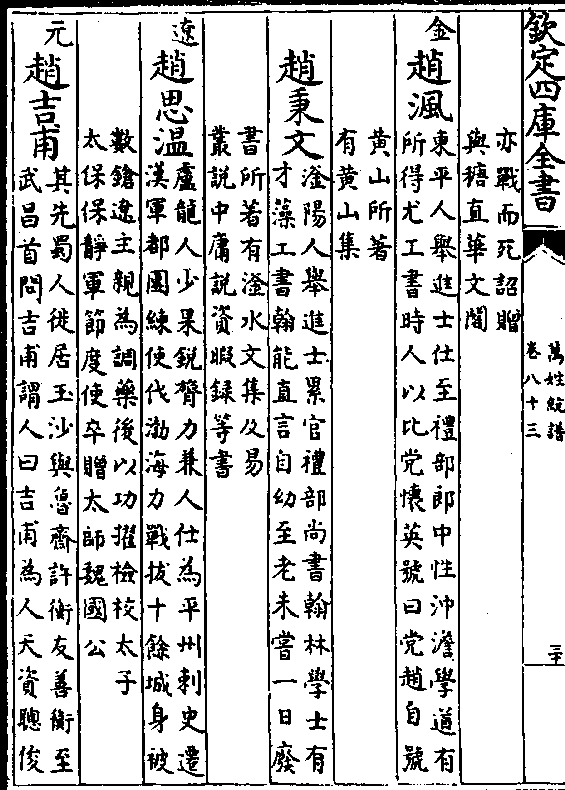 欽定四庫全書
萬姓統譜
卷八十三
三十
亦戰而死詔贈
與穡直華文閣
金
趙渢
東平人舉進士仕至禮部郎中性沖澹學道有
所得尤工書時人以比党懷英號曰党趙自號
黃山所著
有黃山集
趙秉文
滏陽人舉進士累官禮部尚書翰林學士有
才藻工書翰能直言自幼至老未嘗一日廢
書所著有滏水文集及易
叢說中庸說資暇録等書
遼
趙思溫
盧龍人少果鋭膂力兼人仕為平州刺史遷
漢軍都團練使伐渤海力戰拔十餘城身被
數鎗遼主親為調藥後以功擢檢校太子
太保保靜軍節度使卒贈太師魏國公
元
趙吉甫
其先蜀人徙居玉沙與魯齋許衡友善衡至
武昌首問吉甫謂人曰吉甫為人天資聰俊